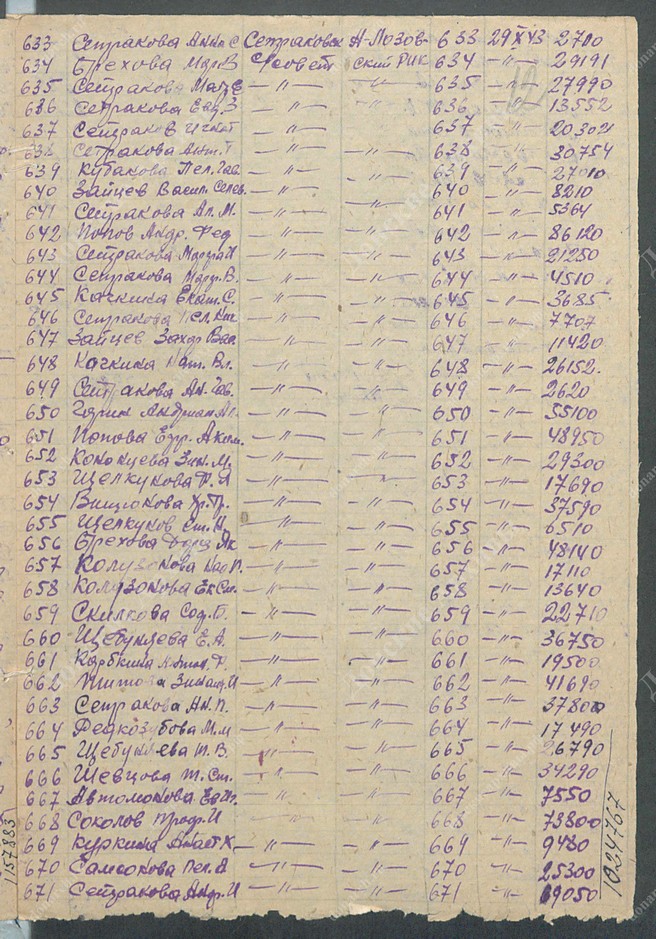 633 Сетракова Анна С Сетраковск А-Лозов- 633 29 X 43 2710
634 Орехова Мар. В Совет ский РИК 634 -"- 29191
635 Сетракова Мат. Е -"- -"- 635 -"- 27990
636 Сетракова Евд. З -"- 636 -"- 13552
637 Сетраков Игнат -"- 637 -"- 203021
638 Сетракова Ант. Т -"- -"- 638 -"- 30754
639 Кубакова Пел. Гав. -"- -"- 639 -"- 27010
640 Зайцев Васил. -"- -"- 640 -"- 8210
641 Сетракова Ал. М. -"- -"- 641 -"- 5364
642 Попов Андр. Фед -"- -"- 642 -"- 86120
643 Сетракова -"- -"- 643 -"- 21250
644 Сетракова Марф. В. -"- -"- 644 -"- 4510
645 Качкина Екат. С. -"- -"- 645 -"- 3685
646 Сетракова -"- -"- 646 -"- 7707
647 Зайцев Захар Вас. -"- -"- 647 -"- 11420
648 Качкина Нат. Вл. -"- -"- 648 -"- 26152
649 Сетракова Ан. Гав. -"- -"- 649 -"- 2620
650 Андриан -"- -"- 650 -"- 55100
651 Попова Ефр. -"- -"- 651 -"- 48950
652 Кононцева Зин. М. -"- -"- 652 -"- 29300
653 Щелкунова -"- -"- 653 -"- 17690
654 -"- -"- 654 -"- 37590
655 Щелкунов Ст. И. -"- -"- 655 -"- 6510
656 Орехова Дарья Як -"- -"- 656 -"- 48140
657 Колузонова -"- -"- 657 -"- 17110
658 Колузонова -"- -"- 658 -"- 13640
659 Скилкова Соф. -"- -"- 659 -"- 22710
660 Щебуняева Е. А. -"- -"- 660 -"- 36750
661 -"- -"- 661 -"- 19500
662 Титова Зинаид. И -"- -"- 662 -"- 41690
663 Сетракова Ан. П. -"- -"- 663 -"- 37800
664 Редкозубова М. М -"- -"- 664 -"- 17490
665 Щебуняева Т. В. -"- -"- 665 -"- 26790
666 Шевцова Т. Ст. -"- -"- 666 -"- 34290
667 Автомонова -"- -"- 667 -"- 7550
668 Соколов Троф. И -"- -"- 668 -"- 73800
669 Куркина Анаст К. -"- -"- 669 -"- 9480
670 Самсонова Пел. А -"- -"- 670 -"- 25300
671 Сетракова Андр. И -"- -"- 671 -"- 69050
1157883
1024767